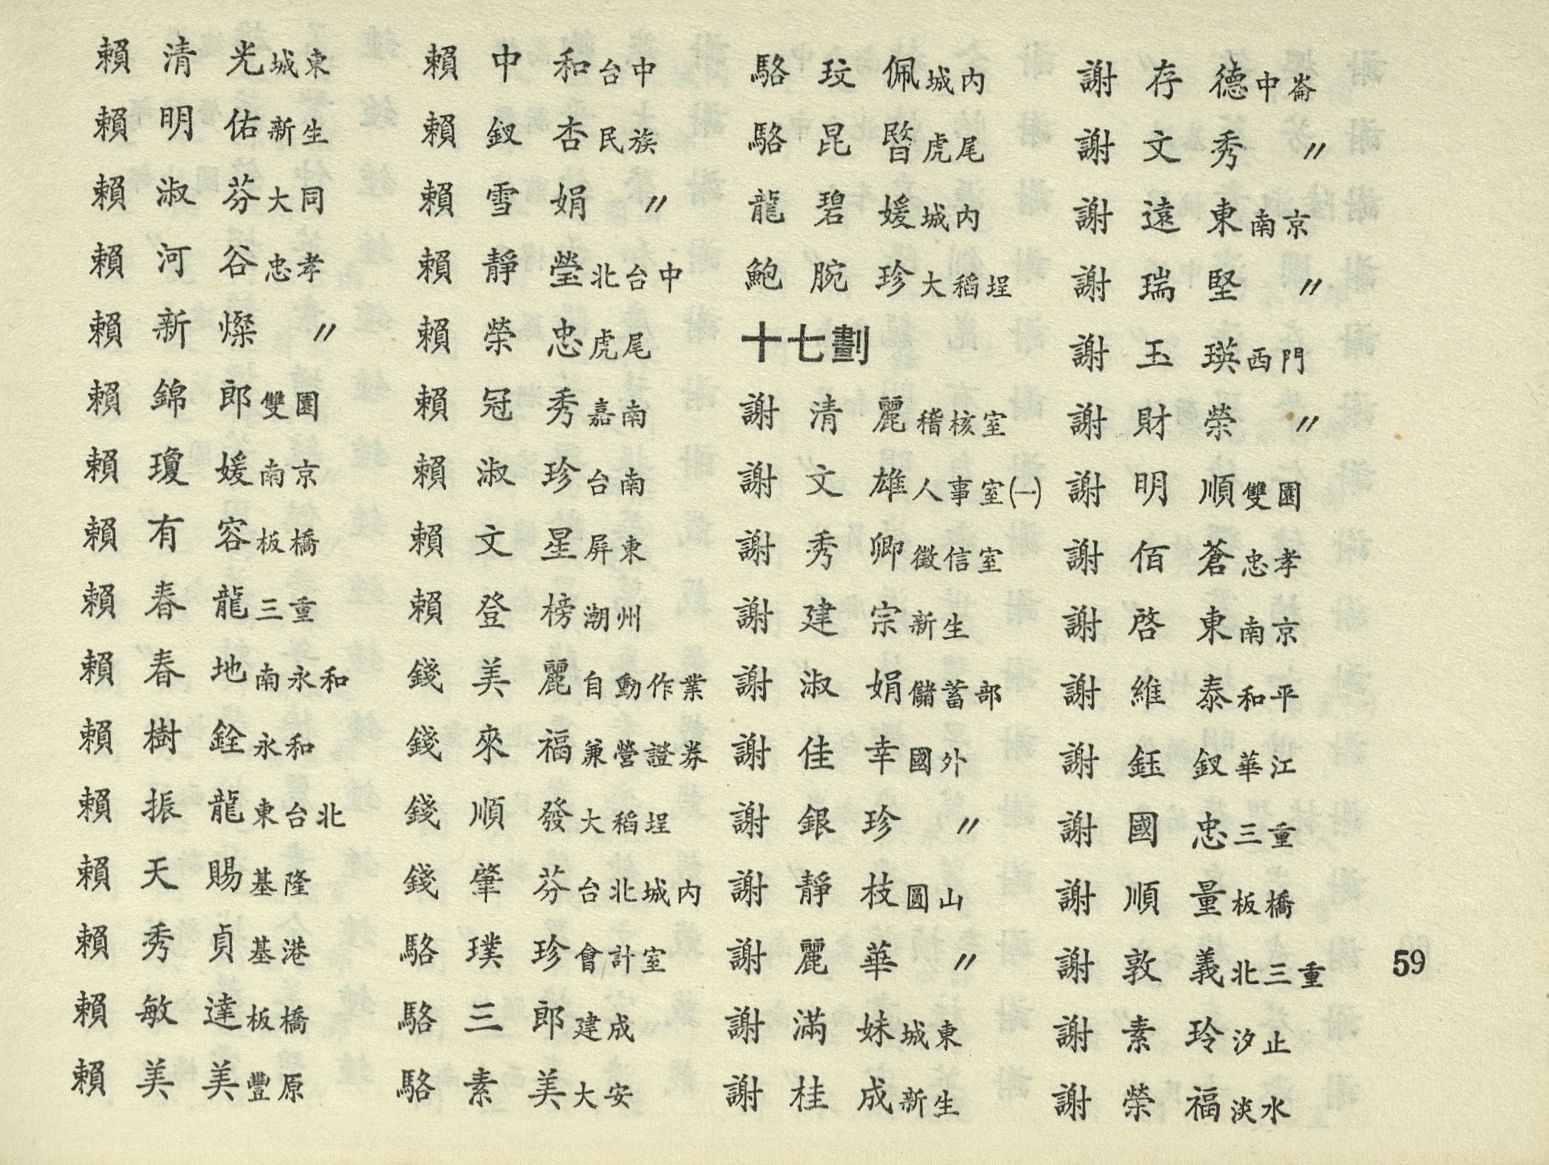 賴清光城東
賴明佑新生
賴淑芬大同
賴河谷忠孝
賴新燦〃
賴錦郎雙園
賴瓊媛南京
賴有容板橋
賴春龍三重
賴春地南永和
賴樹銓永和
賴振龍東台北
賴天賜基隆
賴秀貞基港
賴敏達板橋
賴美美豐原
賴中和台中
賴釵杏民族
賴雪娟〃
賴靜瑩北台中
賴榮忠虎尾
賴冠秀嘉南
賴淑珍台南
賴文星屏東
賴登榜潮州
錢美麗自動作業
錢來福兼營證券
錢順發大稻埕
錢肇芬台北城內
駱璞珍會計室
駱三郎建成
駱素美大安
駱玟佩城內
駱昆暋虎尾
龍碧媛城內
鮑腕珍大稻埕
十七劃
謝清麗稽核室
謝文雄人事室㈠
謝秀卿徵信室
謝建宗新生
謝淑娟儲蓄部
謝佳幸國外
謝銀珍〃
謝靜枝圓山
謝麗華〃
謝滿妹城東
謝桂成新生
謝存德中崙
謝文秀〃
謝遠東南京
謝瑞堅〃
謝玉瑛西門
謝財榮〃
謝明順雙園
謝佰蒼忠孝
謝啓東南京
謝維泰和平
謝鈺釵華江
謝國忠三重
謝順量板橋
謝敦義北三重
謝素玲汐止
謝榮福淡水
59